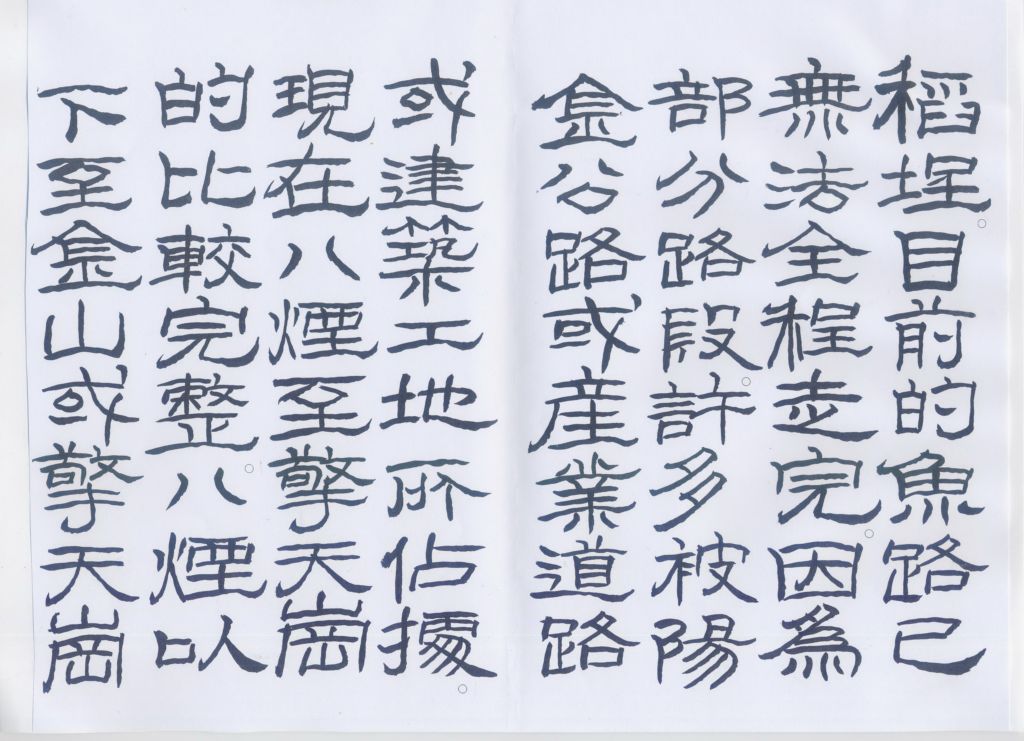 稻埕。目前的魚路已
無法全程走完。因為
部分路段。許多被陽
金公路或產業道路
或建築工地所佔據。
現在八煙至擎天崗
的比較完整。八煙以
下至金山或擎天崗